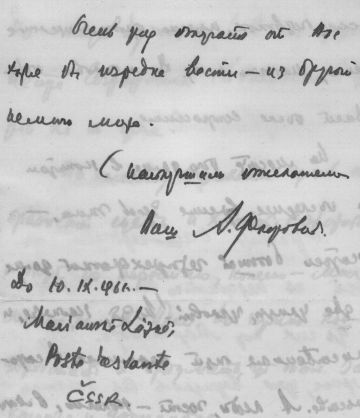 Очень рад получать от Вас
хоть бы изредка вести — из другой
немного мира.
С наилучшими пожеланиями
Ваш А. Флоровский.
До 10.IX.1961. —
Mariánské Lázně,
Poste restante
ČSSR